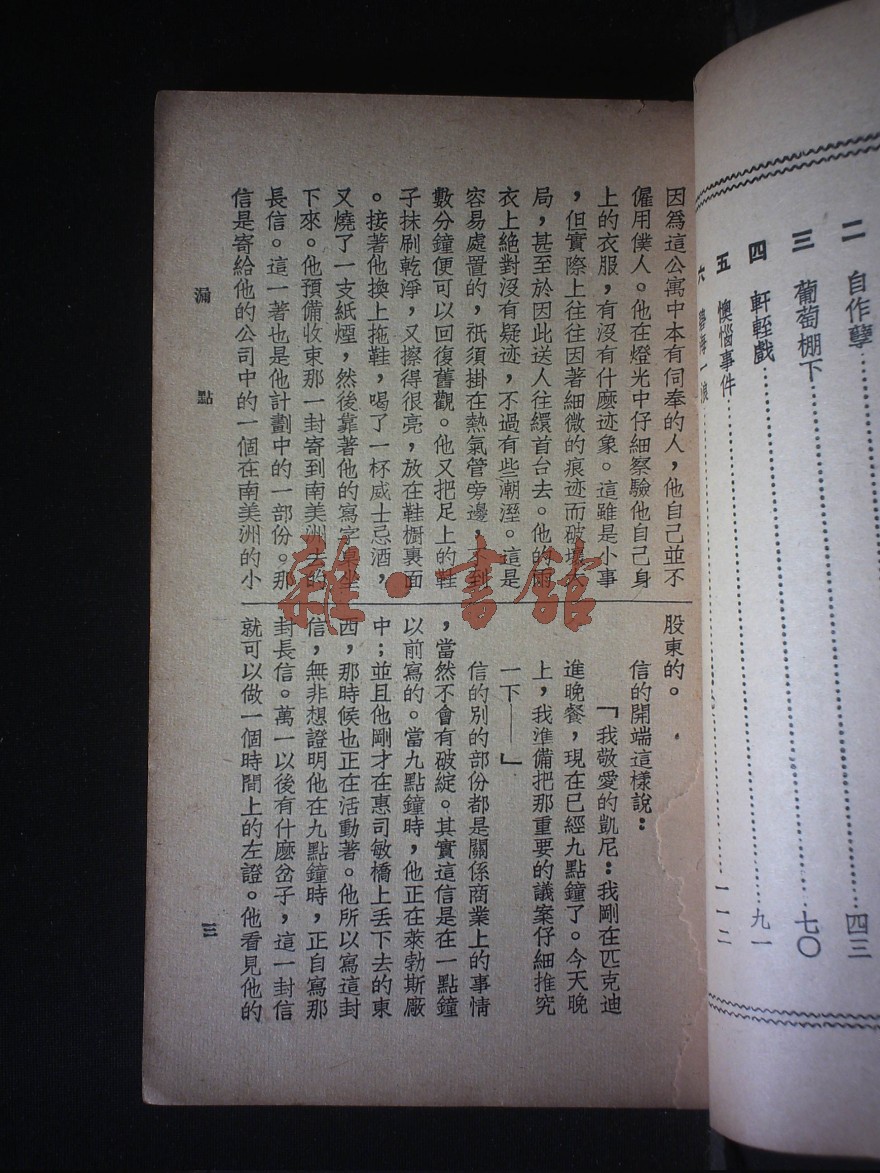 二 自作孽 四三
三 葡萄棚下 七〇
四 軒輊戲 九一
五 懊惱事件 一一二
六
因爲這公寓中本有伺奉的人，他自己並不
僱用僕人。他在燈光中仔細察驗他自己身
上的衣服，有沒有什麼迹象。這雖是小事
，但實際上往往因著細微的痕迹而破壞大
局，甚至於因此送人往繯首台去。他的雨
衣上絕對沒有疑迹，不過有些潮溼。這是
容易處置的，祇須掛在熱氣管旁邊，不到
數分鐘便可以回復舊觀。他又把足上的鞋
子抹刷乾淨，又擦得很亮，放在鞋櫥裏面
。接著他換上拖鞋，喝了一杯威士忌酒，
又燒了一支紙煙，然後靠著他的寫字 坐
下來。他預備收束那一封寄到南美洲去的
長信。這一著也是他計劃中的一部份。那
信是寄給他的公司中的一個在南美洲的小
股東的。
信的開端這樣說：
「我敬愛的凱尼：我剛在匹克迪
進晚餐，現在已經九點鐘了。今天晚
上，我準備把那重要的議案仔細推究
一下——」
信的別的部份都是關係商業上的事情
，當然不會有破綻。其實這信是在一點鐘
以前寫的。當九點鐘時，他正在萊勃斯廠
中；並且他剛才在惠司敏橋上丟下去的東
西，那時候也正在活動著。他所以寫這封
信，無非想證明他在九點鐘時，正自寫那
封長信。萬一以後有什麼岔子，這一封信
就可以做一個時間上的左證。他看見他的
漏點
三
雜·書館